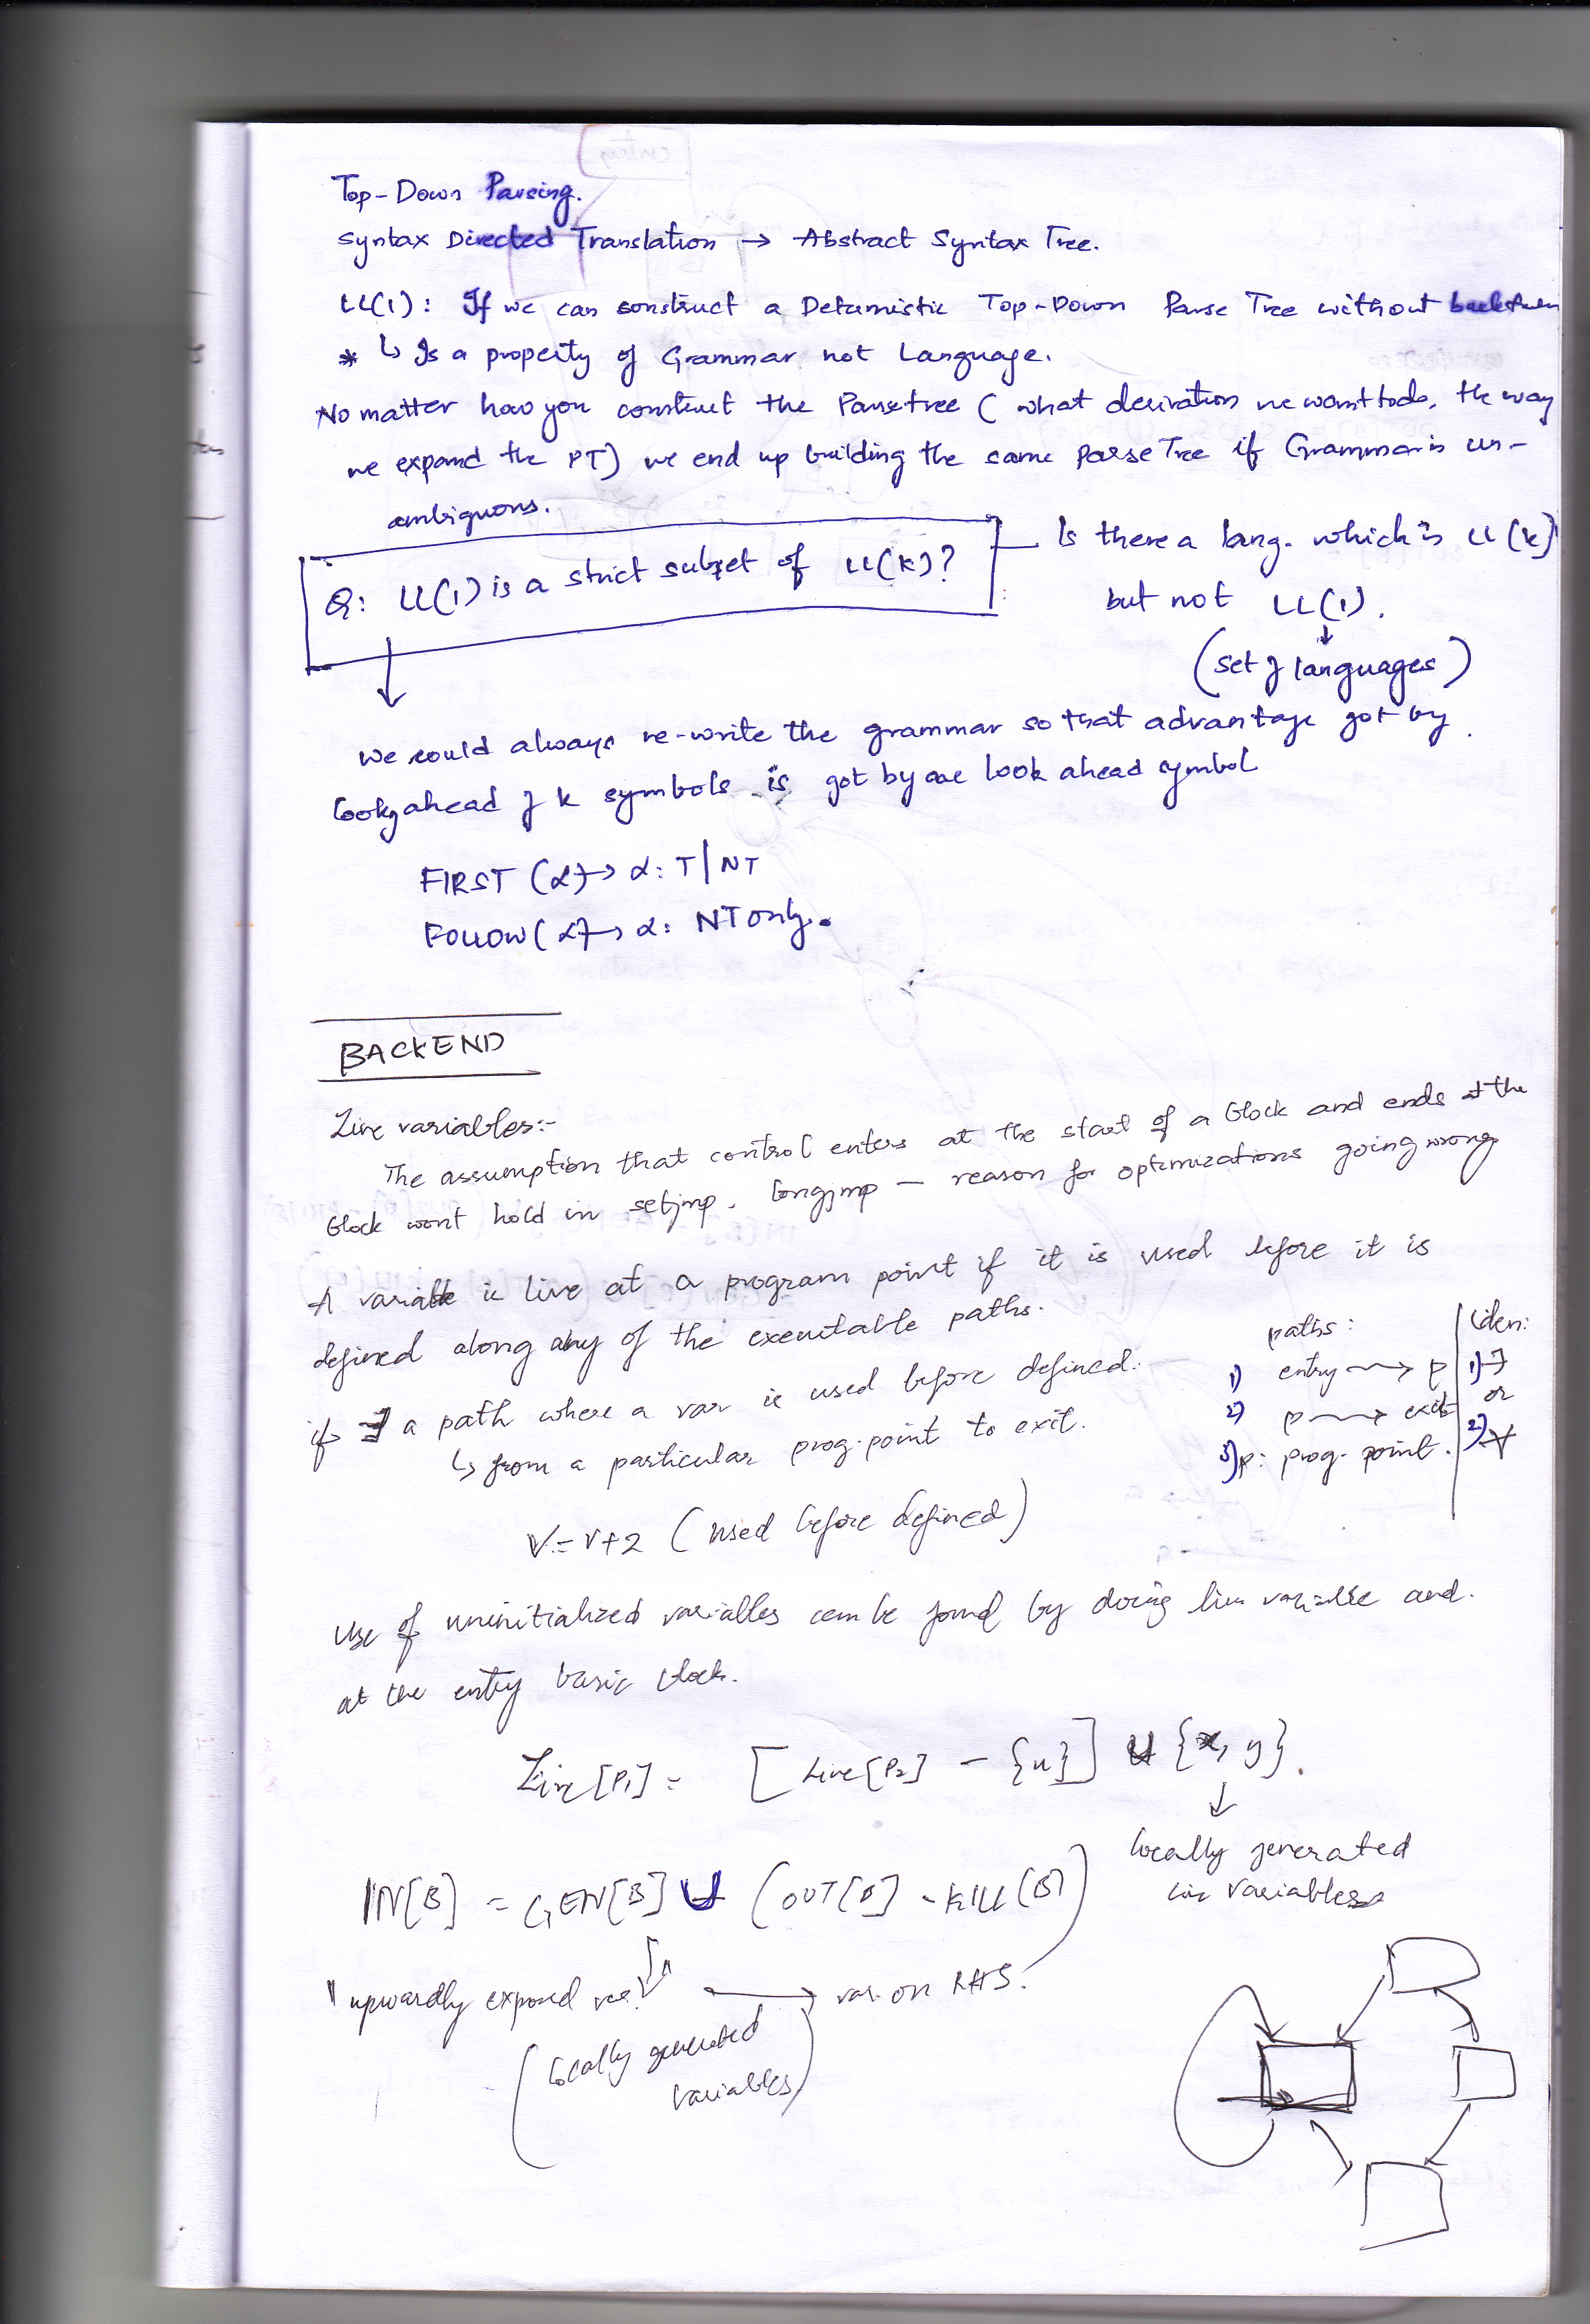 Top-Down Parsing.
Syntax Directed Translation → Abstract Syntax Tree.
LL(1): If we can construct a Detamistic Top-Down Parse Tree without
* ↳ Is a property of Grammar not Language.
No matter how you construct the Parsetree ( what derivation we want to do, the way
we expand the PT) we end up building the same Parse Tree if Grammar is un-
ambiguous.
Q: LL(1) is a strict subset of LL(k)?
Is there a lang. which is LL(k)
but not LL(1).
(set of languages)
we could always re-write the grammar so that advantage got by
lookgahead of k symbols is got by one look ahead symbol
FIRST (α) → α: T | NT
FOLLOW (α) → α: NT only.
BACKEND
Live variables:-
The assumption that control enters at the start of a block and ends at the
block wont hold in setjmp, longjmp — reason for optimizations going wrong
A variable is live at a program point if it is used before it is
defined along any of the executable paths.
if ∃ a path where a var is used before defined.
↳ from a particular prog. point to exit.
paths:
1) entry → p
2) p → exit
3) p: prog. point.
iden:
1) ∃
or
2) ∀
V = V+2 ( used before defined)
Use of uninitialized variables can be found by doing live variable and.
at the entry basic block.
Live [P1] = [ Live [P2] - {u} ] ∪ {x, y}.
↓
locally generated
live variables
IN[B] = GEN[B] ∪ (OUT[B] - KILL(B))
"upwardly exposed " → var. on RHS.
(locally generated
variables)